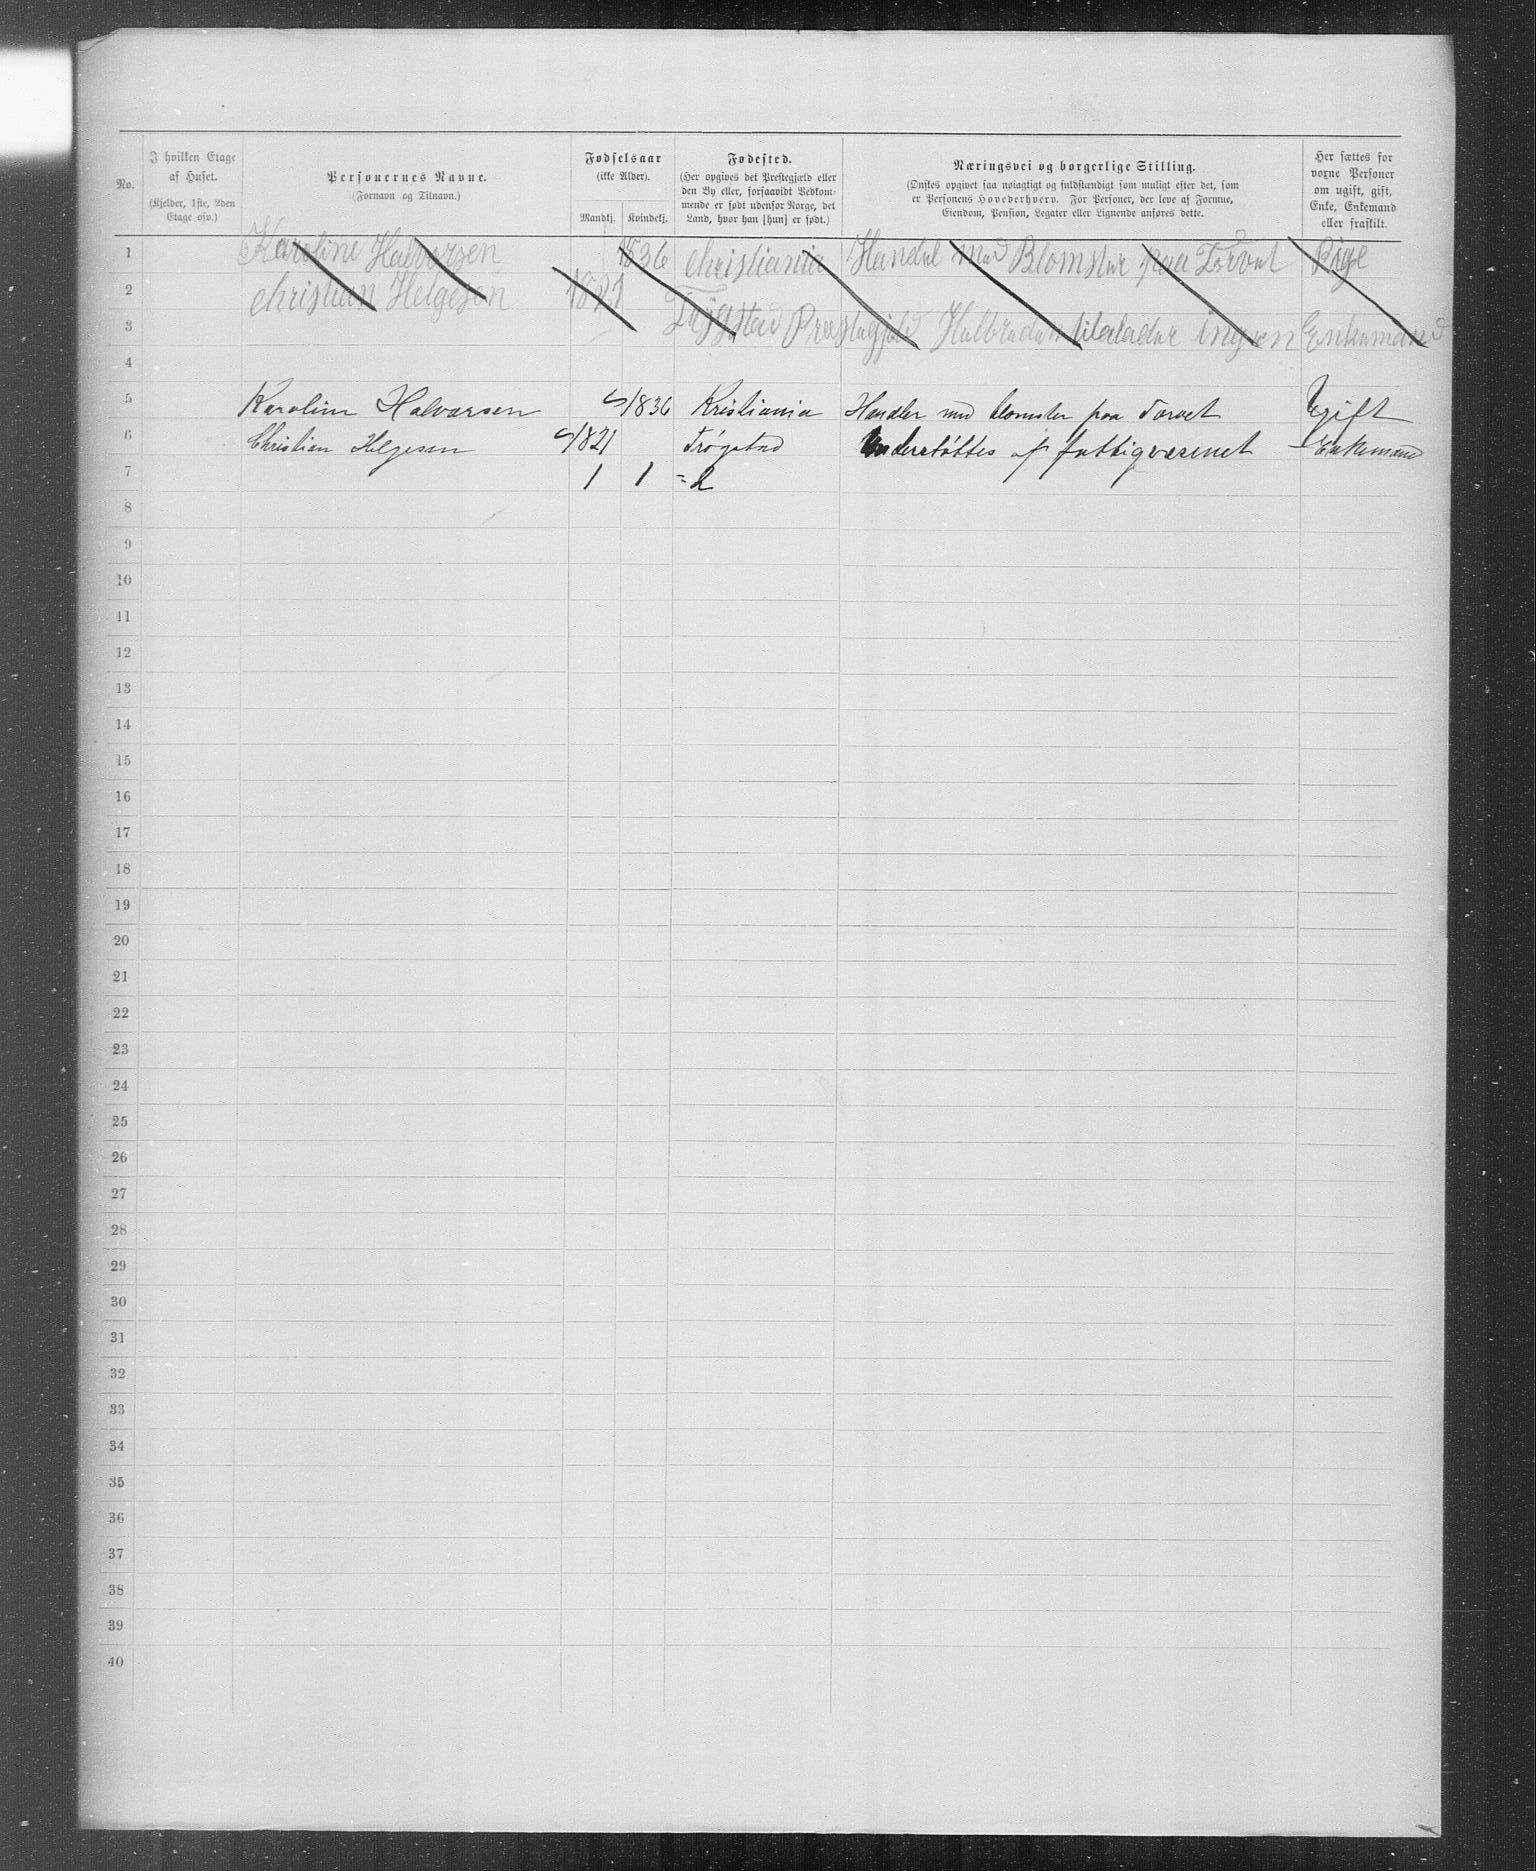 No.
I hvilken Etage
af Huset.
(Kjelder, 1ste, 2den
Etage osv.)
Personernes Navne.
(Fornavn og Tilnavn.)
Fødselsaar
(ikke Alder).
Mandkj.
Kvindekj.
Fødested.
(Her opgives det Prestegjæld eller
den By eller, forsaavidt Vedkom-
mende er født udenfor Norge, det
Land, hvor han [hun] er født.)
Næringsvei og borgerlige Stilling.
(Ønskes opgivet saa nøiagtigt og fuldstændigt som muligt efter det, som
er Personens Hovederhverv. For Personer, der leve af Formue,
Eiendom, Pension, Legater eller Lignende anføres dette.
Her sættes for
voxne Personer
om ugift, gift,
Enke, Enkemand
eller fraskilt.
1 Karoline Halvorsen 1836 christiania Handel med Blomster paa Torvet Pige
2 christian Helgesen 1821
3 Trygstad Præstegjeld ingen Enkemand
4
5 Karoline Halvorsen 1836 Kristiania Handler med blomster paa Torvet Ugift
6 Christian Helgesen 1821 Trøgstad Understøttes af fattigvæsenet Enkemand
7 1 1 = 2
8
9
10
11
12
13
14
15
16
17
18
19
20
21
22
23
24
25
26
27
28
29
30
31
32
33
34
35
36
37
38
39
40